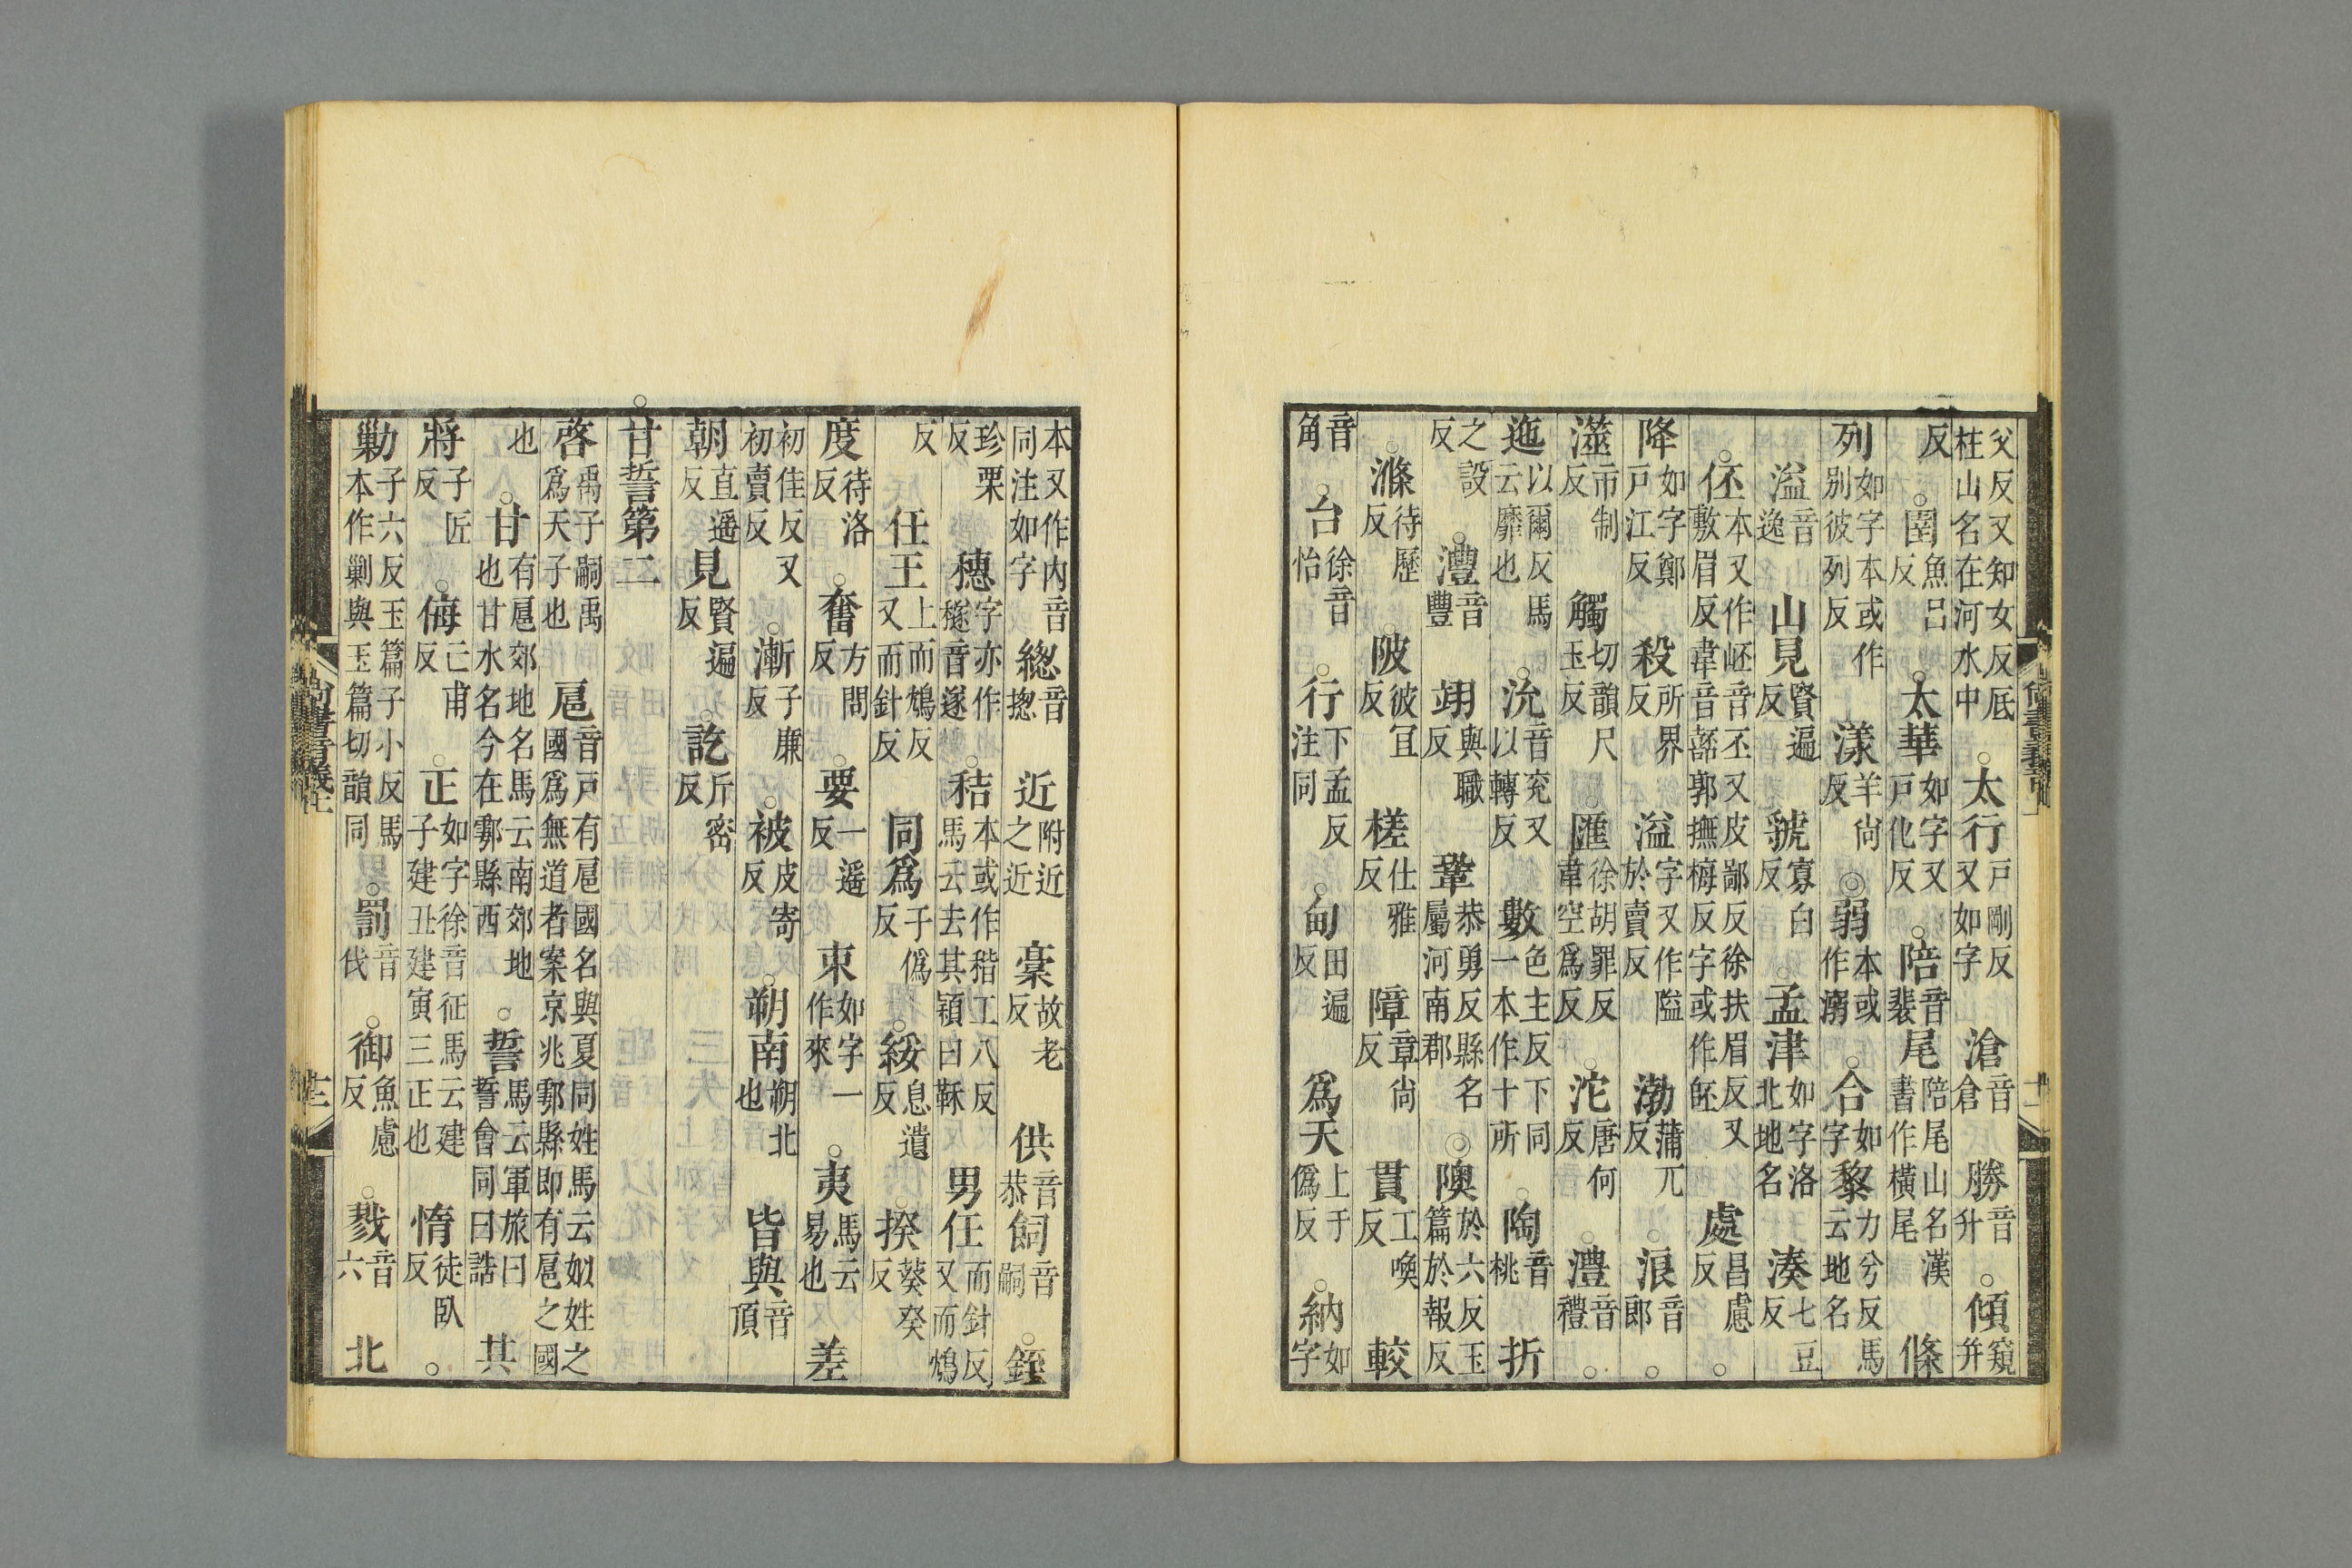 父反又知女反厎柱山名在河水中○太行戶剛反又如字滄音倉勝音升○傾窺并
反○圉魚呂反○太華如字又戶化反○陪音裴尾陪尾山名漢書作橫尾條
列如字本或作别彼列反漾羊尚反◎弱本或作溺○合如字黎力兮反馬云地名
溢音逸山見賢遍反虢寡白反○孟津如字洛北地名湊七豆反
○伾本又作岯音丕又皮鄙反徐扶眉反又敷眉反韋音嚭郭撫梅反字或作䣙處昌慮反○
降如字鄭戶江反殺所界反溢字又作隘於賣反渤蒲兀反○浪音郎○
澨市制反觸切韻尺玉反○匯徐胡罪反韋空爲反○沱唐何反○澧音禮○
迤以爾反馬云靡也○沇音兖又以轉反數色主反下同一本作十所○陶音桃折
之設反○灃音豐翊與職反鞏恭勇反縣名屬河南郡◎隩於六反玉篇於報反
○滌待歷反陂彼冝反槎仕雅反障章尚反貫工喚反較
音角○台徐音怡○行下孟反注同○甸田遍反爲天上于僞反○納如字
本又作内音同注如字緫音揔近附近之近稾故老反供音恭飼音嗣○銍
珍栗反穗字亦作䅗音遂○秸本或作稭工八反馬云去其穎曰鞂男任而針反又而鴆
反任王上而鴆反又而針反同爲子僞反○綏息遺反○揆葵癸反
度待洛反○奮方問反○要一遥反朿如字一作來○夷馬云易也差
初佳反又初賣反○漸子廉反○被皮寄反○朔南朔北也皆與音預
朝直遥反見賢遍反○訖斤密反
○甘誓第二
啓禹子嗣禹爲天子也扈音戸有扈國名與夏同姓馬云姒姓之國爲無道者案京兆鄠縣即有扈之國
也○甘有扈郊地名馬云南郊地也甘水名今在鄠縣西○誓馬云軍旅曰誓會同曰誥其
將子匠反○侮亡甫反○正如字徐音征馬云建子建丑建寅三正也惰徒臥反○
勦子六反玉篇子小反馬本作剿與玉篇切韻同○罰音伐○御魚慮反○戮音六北